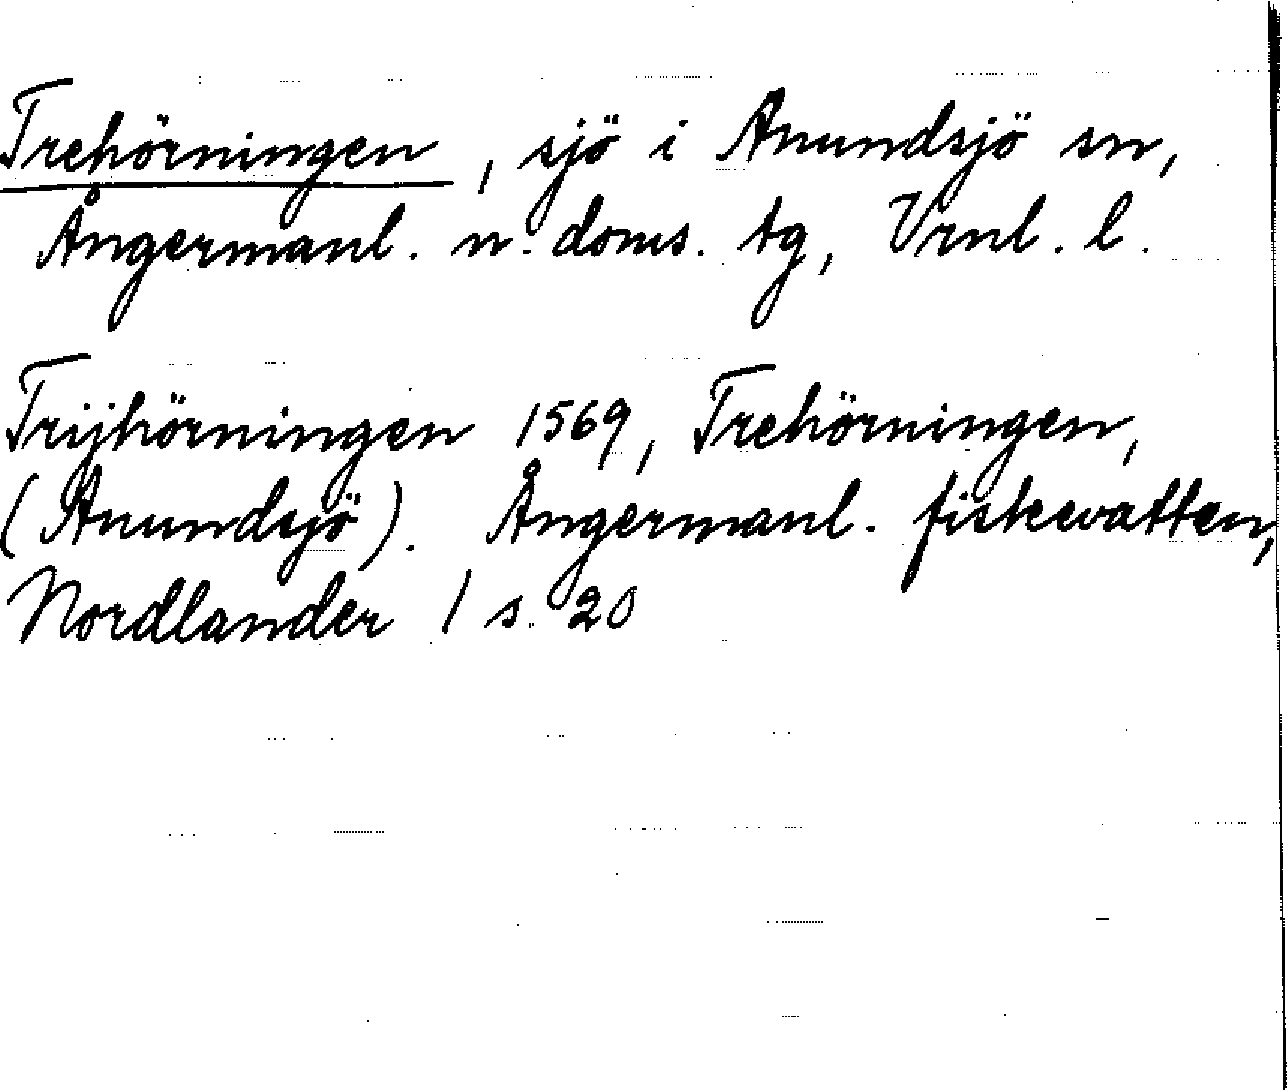 Trehörningen, sjö i Anundsjö sn,
Ångermanl. n. doms. tg, Vrnl. l.
Trijhörningen 1569, Trehörningen,
(Anundsjö). Ångermanl. fiskevatten,
Nordlander 1 s. 20